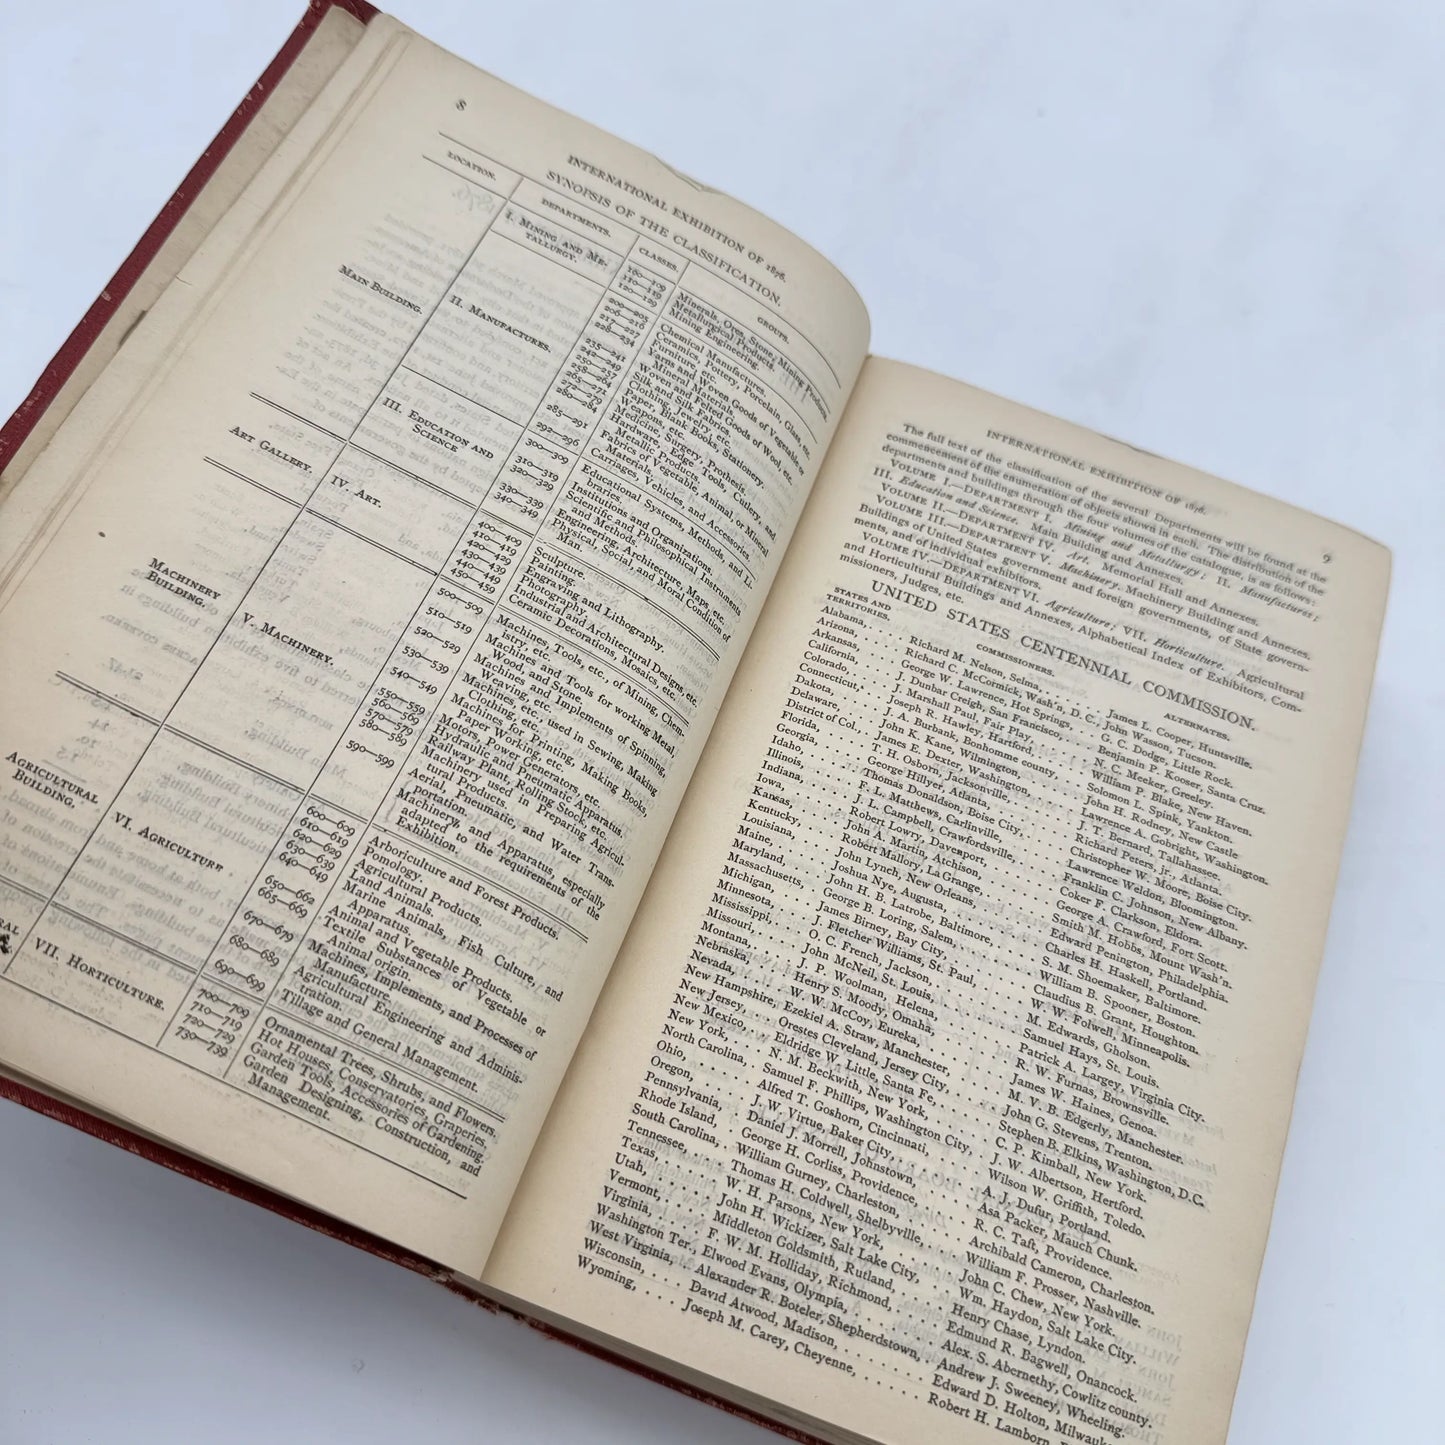 8
INTERNATIONAL EXHIBITION OF 1876.
SYNOPSIS OF THE CLASSIFICATION.
LOCATION. DEPARTMENTS. CLASSES. GROUPS.
MAIN BUILDING.
I. MINING AND ME-
TALLURGY.
100—109 Minerals, Ores, Stone, Mining Products.
110—119 Metallurgical Products.
120—129 Mining Engineering.
II. MANUFACTURES.
200—205 Chemical Manufactures.
206—216 Ceramics, Pottery, Porcelain, Glass, etc.
217—227 Furniture, etc.
228—234 Yarns and Woven Goods of Vegetable or
Mineral Materials.
235—241 Woven and Felted Goods of Wool, etc.
242—249 Silk and Silk Fabrics.
250—257 Clothing, Jewelry, etc.
258—264 Paper, Blank Books, Stationery.
265—271 Weapons, etc.
272—279 Medicine, Surgery, Prothesis.
280—284 Hardware, Edge Tools, Cutlery, and
Metallic Products.
285—291 Fabrics of Vegetable, Animal, or Mineral
Materials.
292—296 Carriages, Vehicles, and Accessories.
III. EDUCATION AND
SCIENCE
300—309 Educational Systems, Methods, and Li-
braries.
310—319 Institutions and Organizations.
320—329 Scientific and Philosophical Instruments
and Methods.
330—339 Engineering, Architecture, Maps, etc.
340—349 Physical, Social, and Moral Condition of
Man.
ART GALLERY.
IV. ART.
400—409 Sculpture.
410—419 Painting.
420—429 Engraving and Lithography.
430—439 Photography.
440—449 Industrial and Architectural Designs, etc.
450—459 Ceramic Decorations, Mosaics, etc.
MACHINERY
BUILDING.
V. MACHINERY.
500—509 Machines, Tools, etc., of Mining, Chem-
istry, etc.
510—519 Machines and Tools for working Metal,
Wood and Stone.
520—529 Machines and Implements of Spinning,
Weaving, etc.
530—539 Machines, etc., used in Sewing, Making
Clothing, etc.
540—549 Machines for Printing, Making Books,
Paper Working, etc.
550—559 Motors, Power Generators, etc.
560—569 Hydraulic and Pneumatic Apparatus.
570—579 Railway Plant, Rolling Stock, etc.
580—589 Machinery used in Preparing Agricul-
tural Products.
590—599 Aerial, Pneumatic, and Water Trans-
portation.
Machinery, and Apparatus, especially
adapted to the requirements of the
Exhibition.
AGRICULTURAL
BUILDING.
VI. AGRICULTURE.
600—609 Arboriculture and Forest Products.
610—619 Pomology.
620—629 Agricultural Products.
630—639 Land Animals.
640—649 Marine Animals, Fish Culture, and
Apparatus.
650—662 Animal and Vegetable Products.
665—669 Textile Substances of Vegetable or
Animal origin.
670—679 Machines, Implements, and Processes of
Manufacture.
680—689 Agricultural Engineering and Adminis-
tration.
690—699 Tillage and General Management.
VII. HORTICULTURE.
700—709 Ornamental Trees, Shrubs, and Flowers.
710—719 Hot Houses, Conservatories, Graperies.
720—729 Garden Tools, Accessories of Gardening.
730—739 Garden Designing, Construction, and
Management.
INTERNATIONAL EXHIBITION OF 1876.
9
The full text of the classification of the several Departments will be found at the
commencement of the enumeration of objects shown in each. The distribution of the
departments and buildings through the four volumes of the catalogue, is as follows:
VOLUME I.—DEPARTMENT I. Mining and Metallurgy; II. Manufactures;
III. Education and Science. Main Building and Annexes.
VOLUME II.—DEPARTMENT IV. Art. Memorial Hall and Annexes.
VOLUME III.—DEPARTMENT V. Machinery. Machinery Building and Annexes.
Buildings of United States government and foreign governments, of State govern-
ments, and of individual exhibitors.
VOLUME IV.—DEPARTMENT VI. Agriculture; VII. Horticulture. Agricultural
and Horticultural Buildings and Annexes, Alphabetical Index of Exhibitors, Com-
missioners, Judges, etc.
UNITED STATES CENTENNIAL COMMISSION.
STATES AND
TERRITORIES. COMMISSIONERS. ALTERNATES.
Alabama, Richard M. Nelson, Selma, James L. Cooper, Huntsville.
Arizona, Richard C. McCormick, Wash'n, D. C., John Wasson, Tucson.
Arkansas, George W. Lawrence, Hot Springs, G. C. Dodge, Little Rock.
California, J. Dunbar Creigh, San Francisco, Benjamin P. Kooser, Santa Cruz.
Colorado, J. Marshall Paul, Fair Play, N. C. Meeker, Greeley.
Connecticut, Joseph R. Hawley, Hartford, William P. Blake, New Haven.
Dakota, J. A. Burbank, Bonhomme county, Solomon L. Spink, Yankton.
Delaware, John K. Kane, Wilmington, John H. Rodney, New Castle
District of Col., James E. Dexter, Washington, Lawrence A. Gobright, Washington.
Florida, T. H. Osborn, Jacksonville, J. T. Bernard, Tallahassee.
Georgia, George Hillyer, Atlanta, Richard Peters, jr., Atlanta.
Idaho, Thomas Donaldson, Boise City, Christopher W. Moore, Boise City.
Illinois, F. L. Matthews, Carlinville, Lawrence Weldon, Bloomington.
Indiana, J. L. Campbell, Crawfordsville, Franklin C. Johnson, New Albany.
Iowa, Robert Lowry, Davenport, Coker F. Clarkson, Eldora.
Kansas, John A. Martin, Atchison, George A. Crawford, Fort Scott.
Kentucky, Robert Mallory, La Grange, Smith M. Hobbs, Mount Wash'n.
Louisiana, John Lynch, New Orleans, Edward Penington, Philadelphia.
Maine, Joshua Nye, Augusta, Charles H. Haskell, Portland.
Maryland, John H. B. Latrobe, Baltimore, S. M. Shoemaker, Baltimore.
Massachusetts, George B. Loring, Salem, William B. Spooner, Boston.
Michigan, James Birney, Bay City, Claudius B. Grant, Houghton.
Minnesota, J. Fletcher Williams, St. Paul, W. W. Folwell, Minneapolis.
Mississippi, O. C. French, Jackson, M. Edwards, Gholson.
Missouri, John McNeil, St. Louis, Samuel Hays, St. Louis.
Montana, J. P. Woolman, Helena, Patrick A. Largey, Virginia City.
Nebraska, Henry S. Moody, Omaha, R. W. Furnas, Brownsville.
Nevada, W. W. McCoy, Eureka, James W. Haines, Genoa.
New Hampshire, Ezekiel A. Straw, Manchester, M. V. B. Edgerly, Manchester.
New Jersey, Orestes Cleveland, Jersey City, John G. Stevens, Trenton.
New Mexico, Eldridge W. Little, Santa Fe, Stephen B. Elkins, Washington, D.C.
New York, N. M. Beckwith, New York, C. P. Kimball, New York.
North Carolina, Samuel F. Phillips, Washington City, J. W. Albertson, Hertford.
Ohio, Alfred T. Goshorn, Cincinnati, Wilson W. Griffith, Toledo.
Oregon, J. W. Virtue, Baker City, A. J. Dufur, Portland.
Pennsylvania, Daniel J. Morrell, Johnstown, Asa Packer, Mauch Chunk.
Rhode Island, George H. Corliss, Providence, R. C. Taft, Providence.
South Carolina, William Gurney, Charleston, Archibald Cameron, Charleston.
Tennessee, Thomas H. Coldwell, Shelbyville, William F. Prosser, Nashville.
Texas, W. H. Parsons, New York, John C. Chew, New York.
Utah, John H. Wickizer, Salt Lake City, Wm. Haydon, Salt Lake City.
Vermont, Middleton Goldsmith, Rutland, Henry Chase, Lyndon.
Virginia, F. W. M. Holliday, Richmond, Edmund R. Bagwell, Onancock.
Washington Ter., Elwood Evans, Olympia, Alex. S. Abernethy, Cowlitz county.
West Virginia, Alexander R. Boteler, Shepherdstown, Andrew J. Sweeney, Wheeling.
Wisconsin, David Atwood, Madison, Edward D. Holton, Milwaukee
Wyoming, Joseph M. Carey, Cheyenne, Robert H. Lamborn,